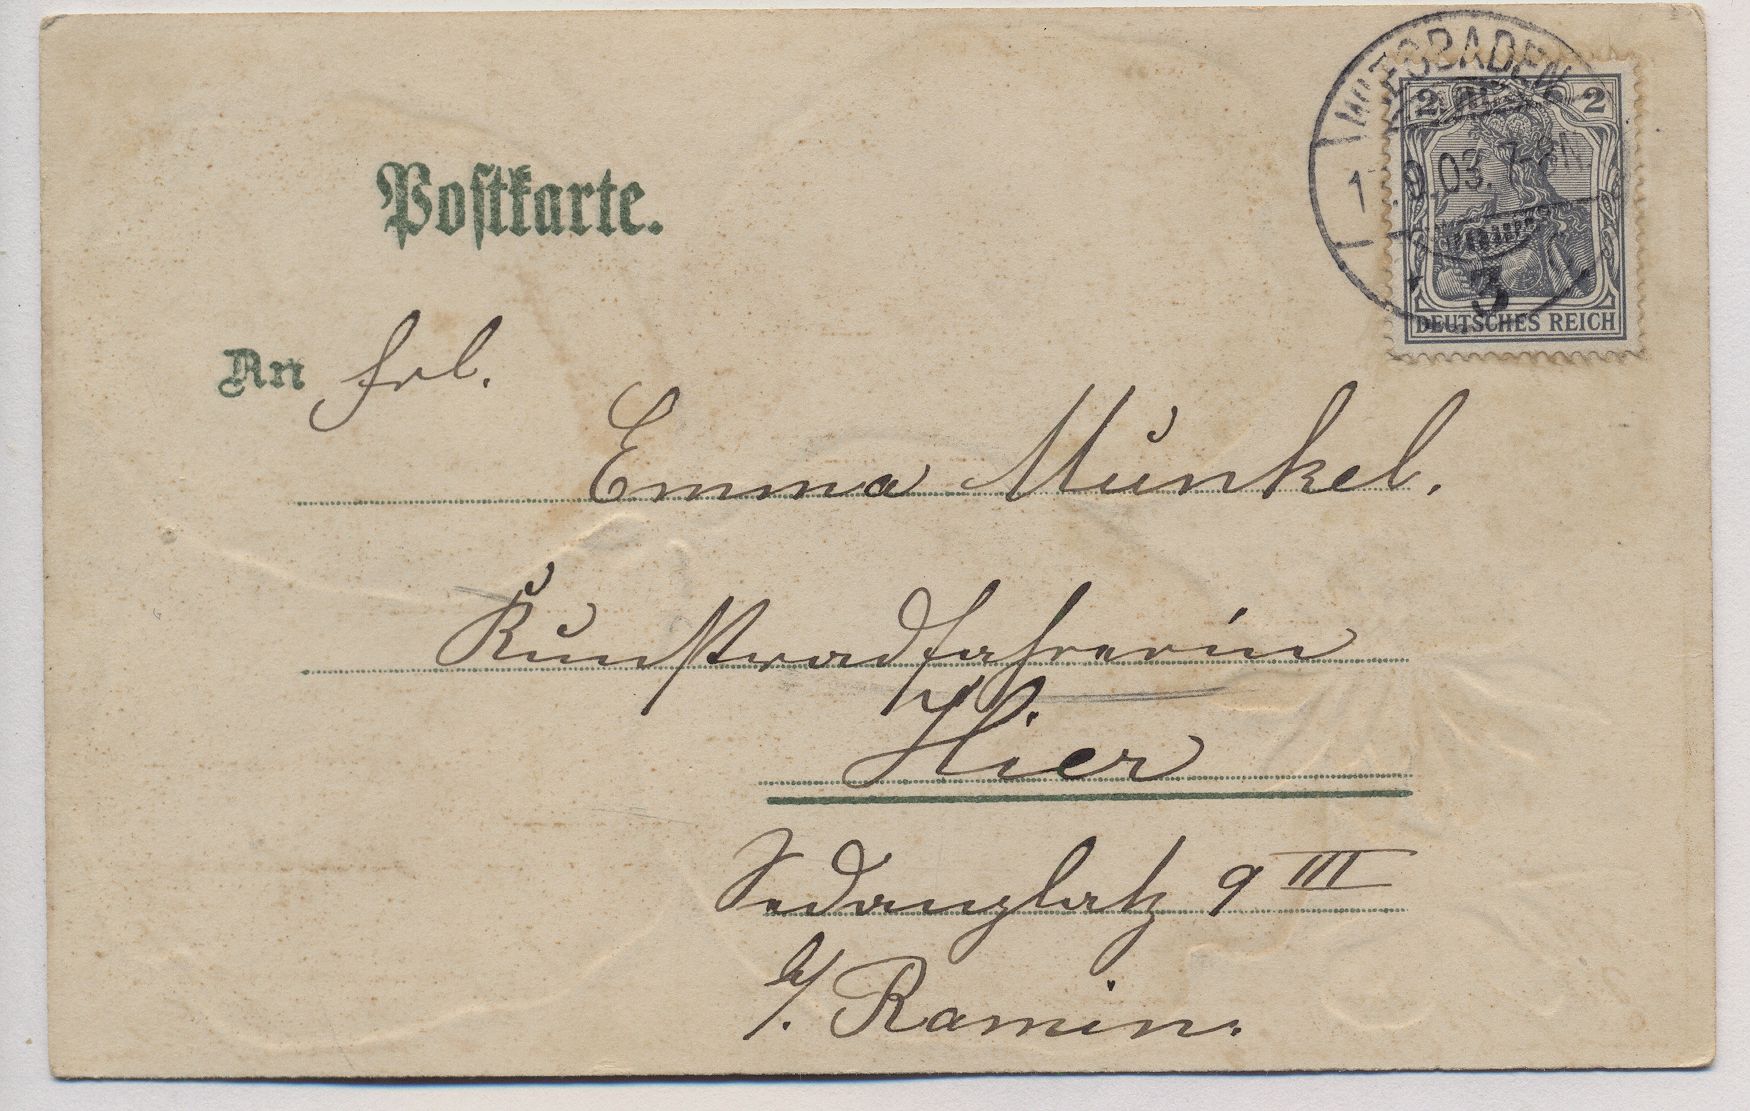 WIESBADEN
1.9.03. 7-8N
3
2 2
DEUTSCHES REICH
Postkarte.
An Frl.
Emma Munkel.
Kunstradfahrerin
Hier
Sedanplatz 9 III
b/. Ramin.